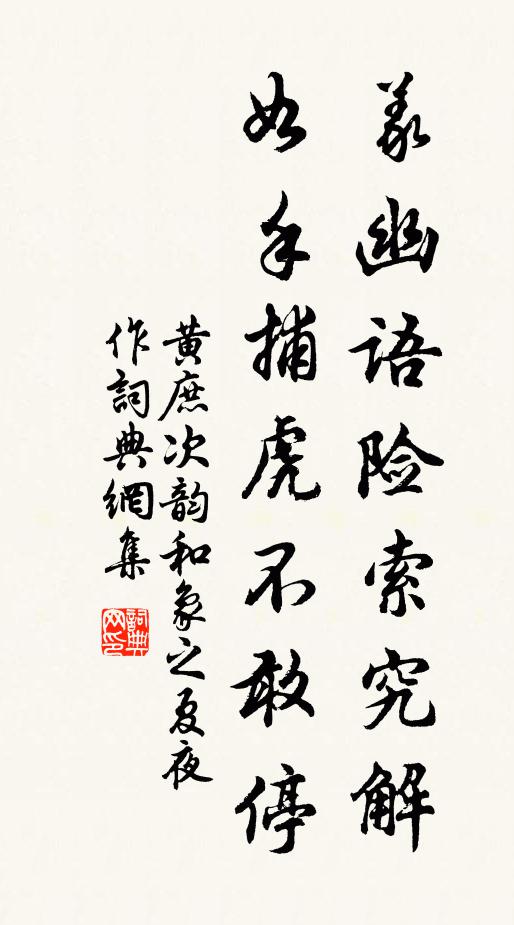 義幽语险索究解
如手捕虎不敢停
黄庶次韵和象之夏夜
作詞典網集
詞典網印